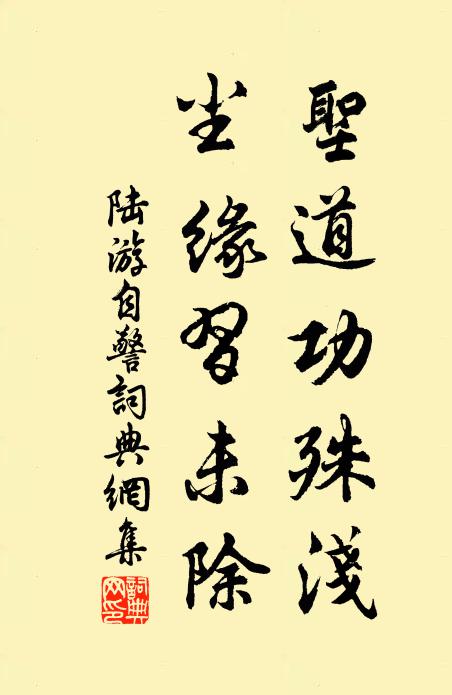 聖道功殊淺
尘緣習未除
陸游自警詞典網集
詞典网印